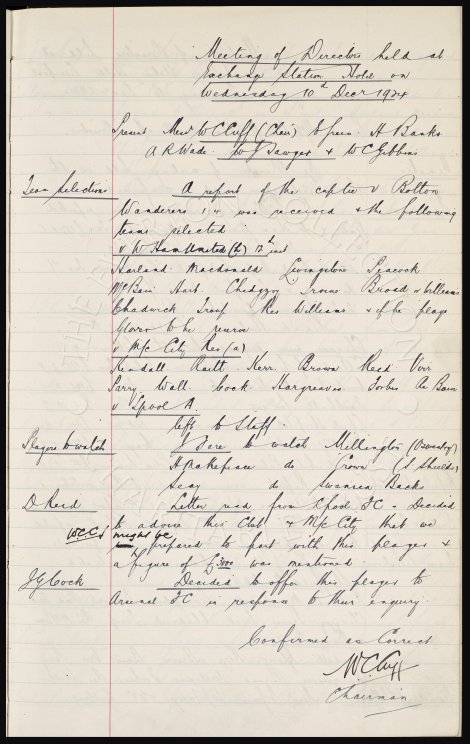 Meeting of Directors held at
Exchange Station Hotel on
Wednesday 10th Decr 1924
Present Messrs W C Cuff (Chair) H Banks
A R Wade. W J Sawyer & W C Gibbins
Team Selections
A report of the captn v Bolton
Wanderers 1/4 was received & the following
teams selected
v W Ham United (h) 13th inst
Harland Macdonald Livingstone Peacock
McBain Hart. Chedgzoy Irvine Broad & Williams
Chadwick Troup Res Williams & if he plays
to be reserve
v M/c City Res (a)
Kendall Raitt. Kerr. Brown Reid Virr
Parry Wall Cock Hargreaves Forbes
v L'pool A.
left to Staff.
Players to watch
to watch Millington (Oswestry)
H Makepeace do Crown (S Shields)
do Swansea Backs
D Reid
Letter read from L'pool FC - Decided
to advise this Club & M/c City that we
WCC
might be
prepared to part with this player &
a figure of £3000 was mentioned.
J G Cock
Decided to offer this player to
Arsenal FC in response to their enquiry.
Confirmed as Correct
W.C. Cuff
Chairman